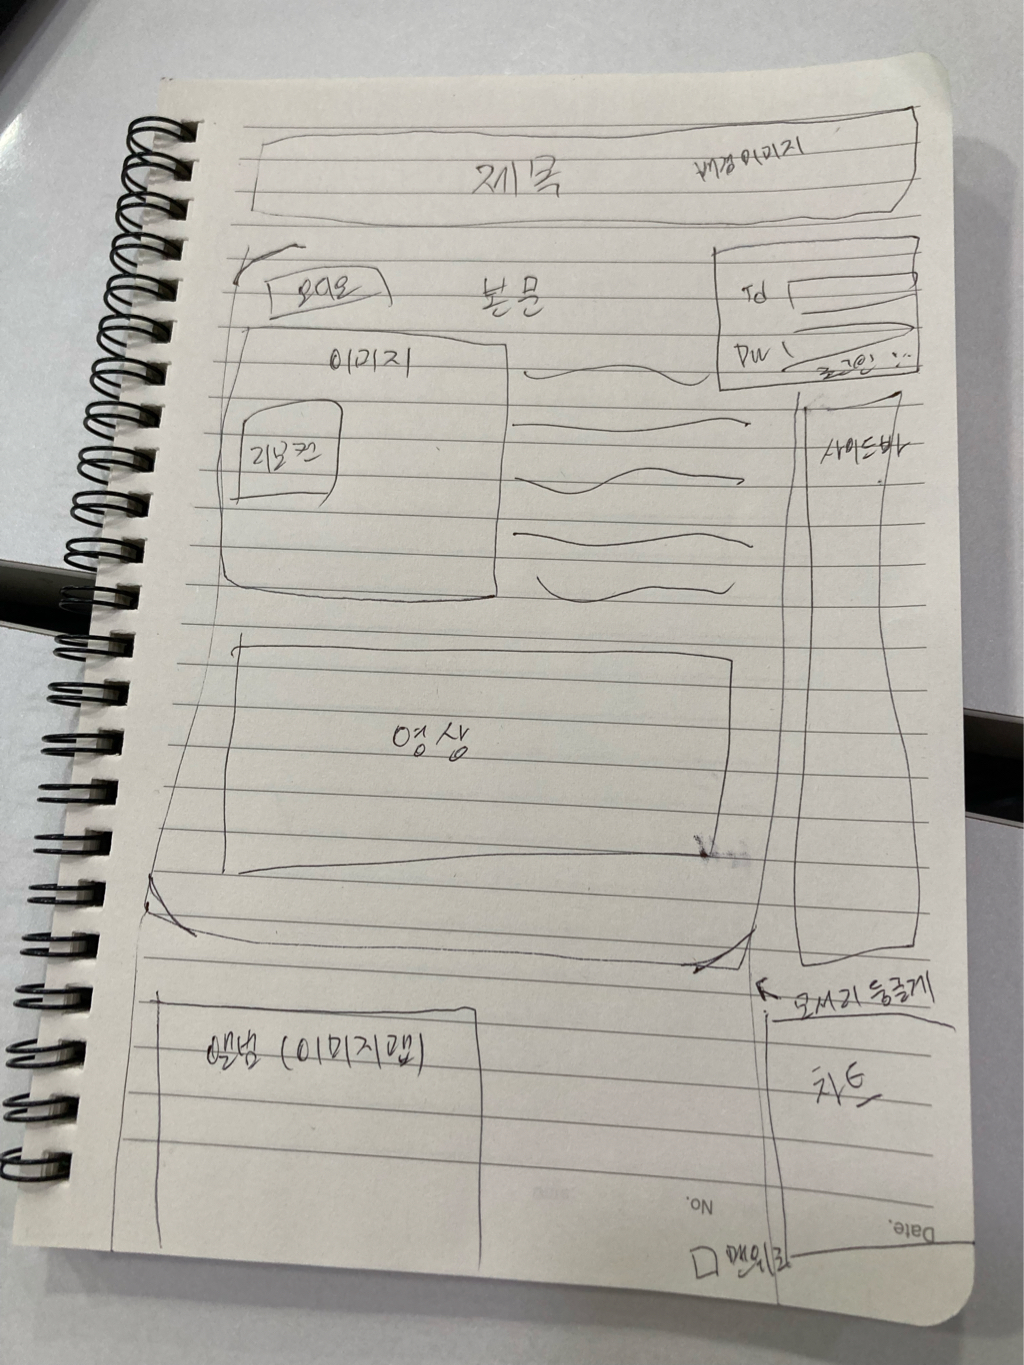 제목
배경이미지
오디오
본문
Id
PW
로그인
이미지
리모컨
사이드바
영상
모서리 둥글게
앨범 (이미지맵)
차트
No.
Date.
맨위로